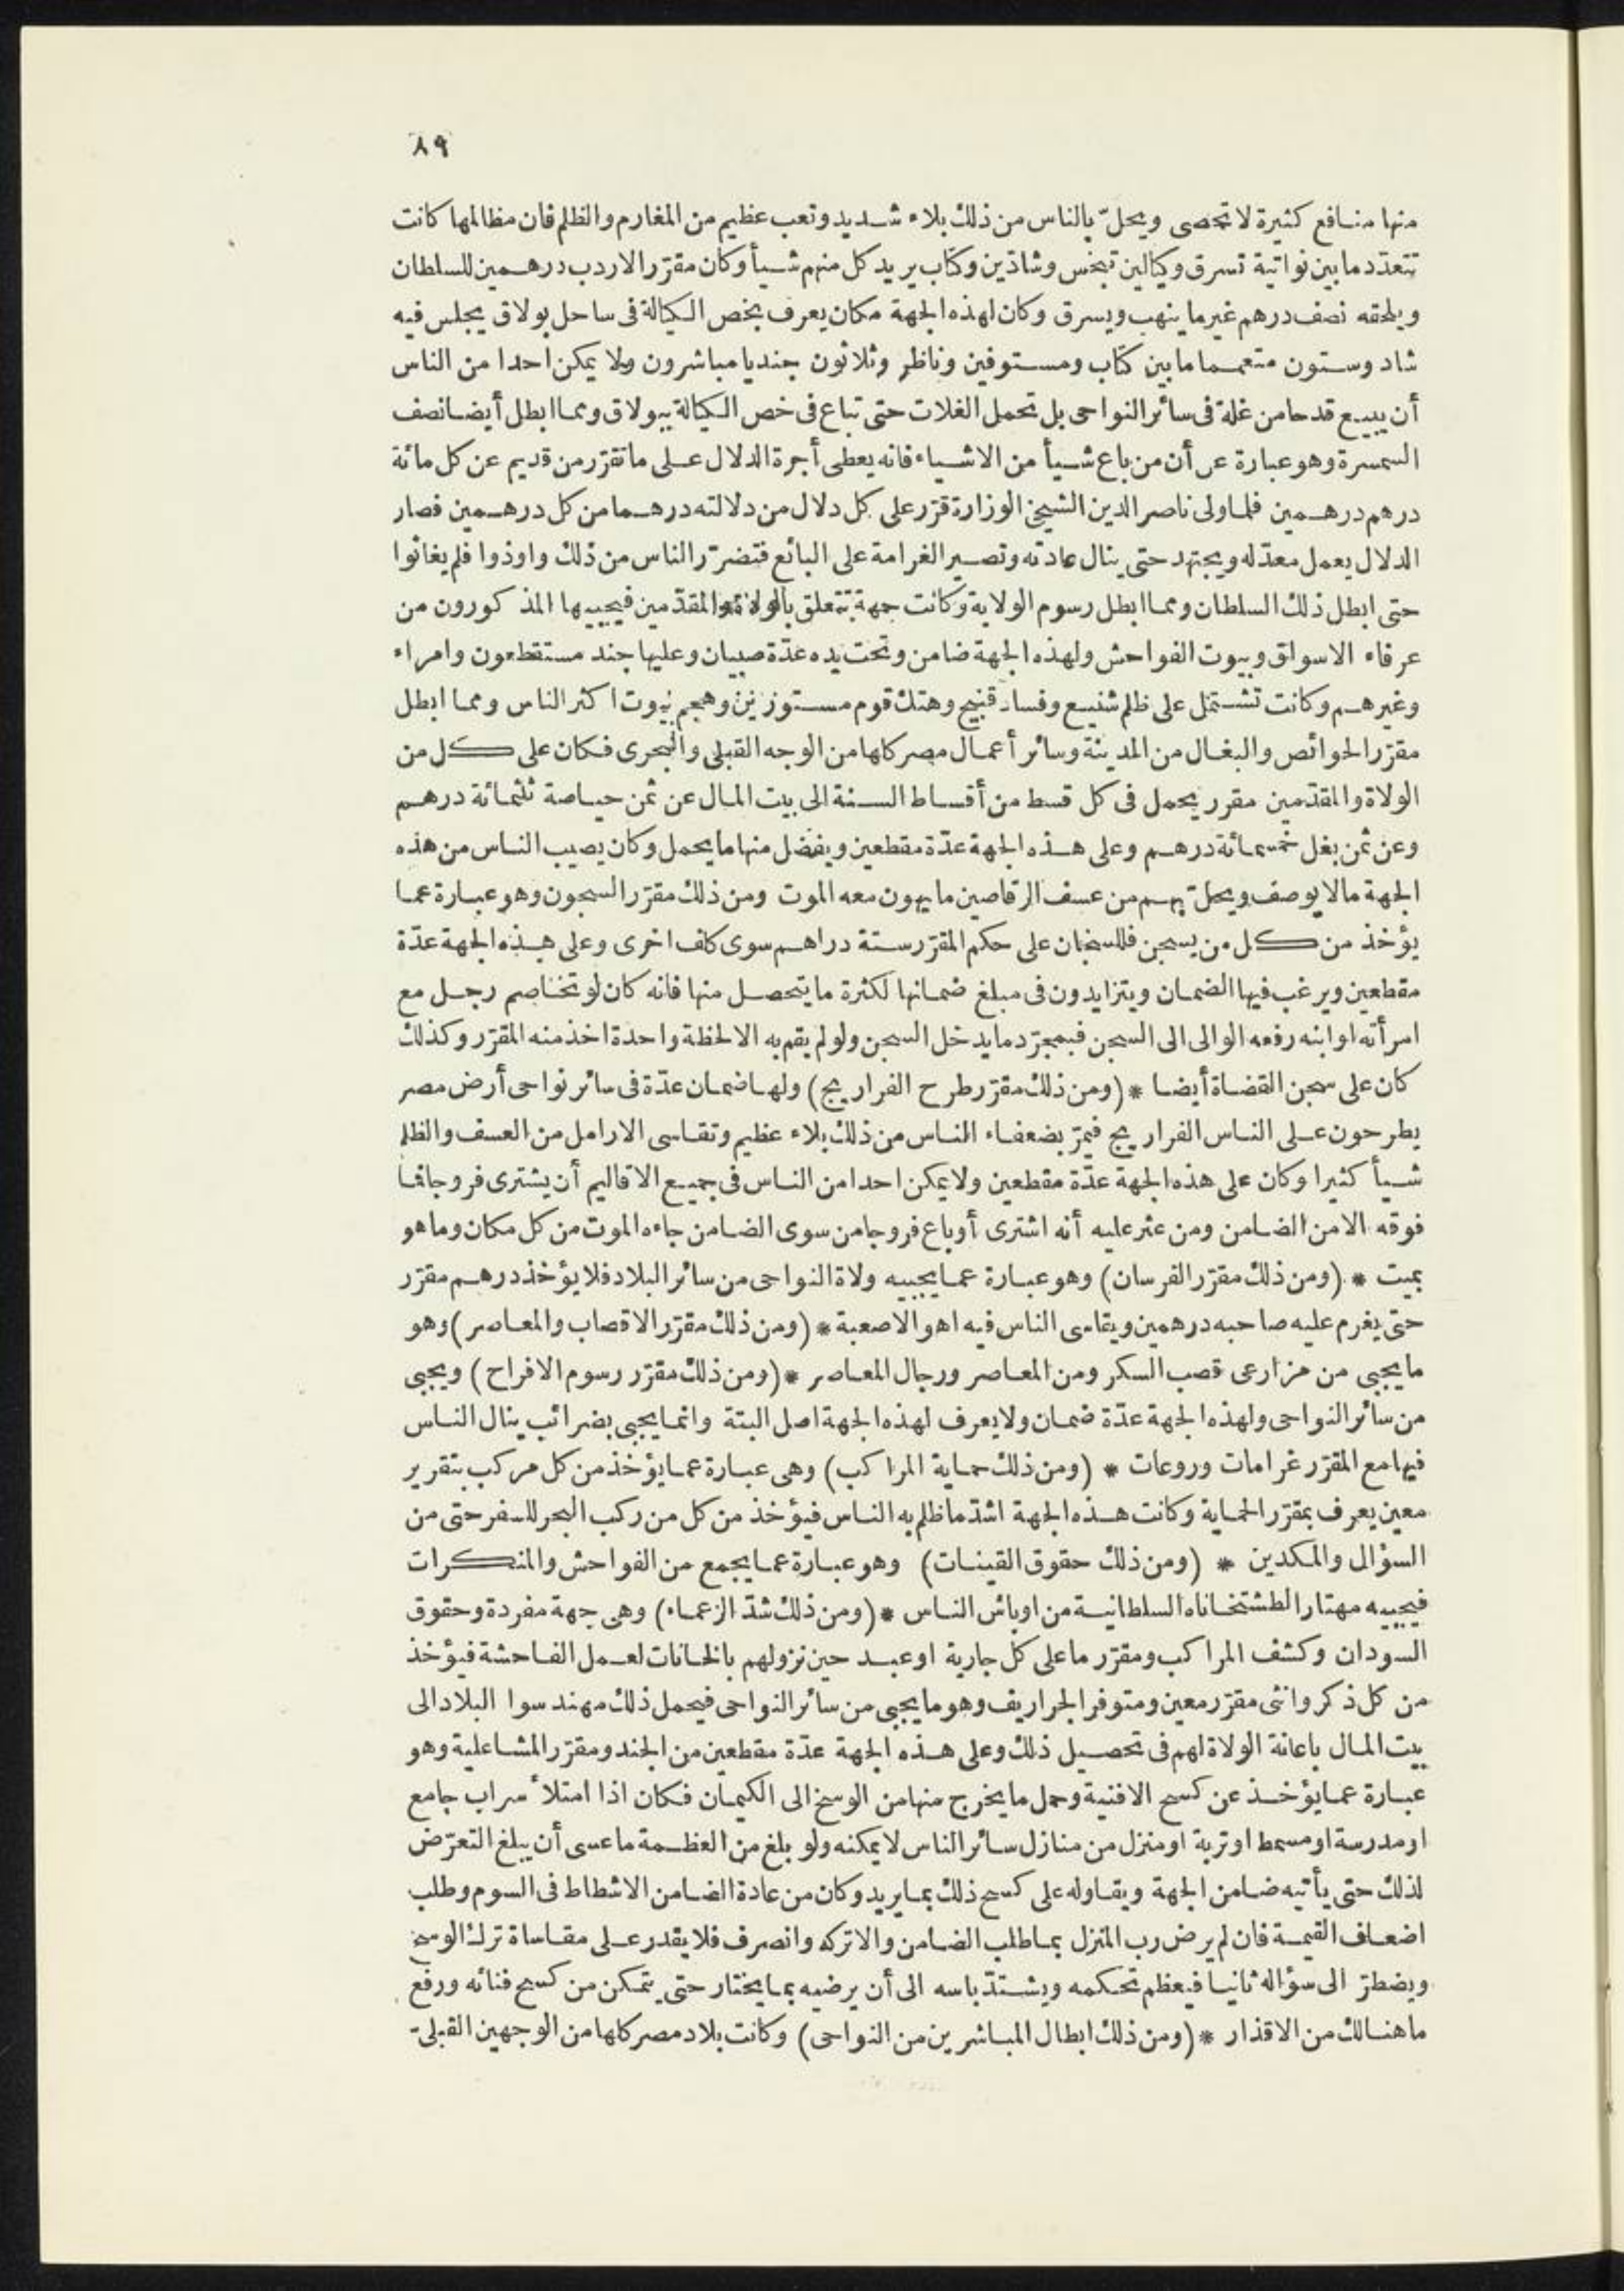 ٨٩
منها منافع كثيرة لا تحصى ويحلّ بالناس من ذلك بلاء شديد وتعب عظيم من المغارم والظلم فان مظالمها كانت
تتعدّد ما بين نواتية تسرق وكيالين تبخس وشادّين وكتاب يريد كل منهم شيأ وكان مقرّر الاردب درهمين للسلطان
ويلحقه نصف درهم غير ما ينهب ويسرق وكان لهذه الجهة مكان يعرف بخص الكيالة فى ساحل بولاق يجلس فيه
شاد وستون متعمما ما بين كتاب ومستوفين وناظر وثلاثون جنديا مباشرون ولا يمكن احدا من الناس
أن يبيع قدحا من غلة فى سائر النواحى بل تحمل الغلات حتى تباع فى خص الكيالة ببولاق ومما ابطل أيضا نصف
السمسرة وهو عبارة عن أن من باع شيأ من الاشياء فانه يعطى أجرة الدلال على ما تقرّر من قديم عن كل مائة
درهم درهمين فلما ولى ناصر الدين الشيخى الوزارة قرّر على كل دلال من دلالته درهما من كل درهمين فصار
الدلال يعمل معدّله ويجتهد حتى ينال عادته وتصير الغرامة على البائع فتضرّر الناس من ذلك واوذوا فلم يغاثوا
حتى ابطل ذلك السلطان ومما ابطل رسوم الولاية وكانت جهة تتعلق بالولاة والمقدّمين فيجبيها المذكورون من
عرفاء الاسواق وبيوت الفواحش ولهذه الجهة ضامن وتحت يده عدّة صبيان وعليها جند مستقطعون وامراء
وغيرهم وكانت تشتمل على ظلم شنيع وفساد قبيح وهتك قوم مستورين وهجم بيوت اكثر الناس ومما ابطل
مقرّر الحوائص والبغال من المدينة وسائر أعمال مصر كلها من الوجه القبلى والبحرى فكان على كل من
الولاة والمقدّمين مقرر يحمل فى كل قسط من أقساط السنة الى بيت المال عن ثمن حياصة ثلثمائة درهم
وعن ثمن بغل خمسمائة درهم وعلى هذه الجهة عدّة مقطعين ويفضل منها ما يحمل وكان يصيب الناس من هذه
الجهة مالا يوصف ويحلّ بهم من عسف الرقاصين ما يهون معه الموت ومن ذلك مقرّر السجون وهو عبارة عما
يؤخذ من كل من يسجن فللسجان على حكم المقرّر ستة دراهم سوى كلف اخرى وعلى هذه الجهة عدّة
مقطعين ويرغب فيها الضمان ويتزايدون فى مبلغ ضمانها لكثرة ما يتحصل منها فانه كان لو تخاصم رجل مع
امرأته او ابنه رفعه الوالى الى السجن فبمجرّد ما يدخل السجن ولو لم يقم به الا لحظة واحدة اخذ منه المقرّر وكذلك
كان على سجن القضاة أيضا * (ومن ذلك مقرّر طرح الفراريج) ولها ضمان عدّة فى سائر نواحى أرض مصر
يطرحون على الناس الفراريج فيمرّ بضعفاء الناس من ذلك بلاء عظيم وتقاسى الارامل من العسف والظلم
شيأ كثيرا وكان على هذه الجهة عدّة مقطعين ولا يمكن احدا من الناس فى جميع الاقاليم أن يشترى فروجا فما
فوقه الا من الضامن ومن عثر عليه أنه اشترى أو باع فروجا من سوى الضامن جاءه الموت من كل مكان وما هو
بميت * (ومن ذلك مقرّر الفرسان) وهو عبارة عما يجبيه ولاة النواحى من سائر البلاد فلا يؤخذ درهم مقرّر
حتى يغرم عليه صاحبه درهمين ويقاسى الناس فيه اهوالا صعبة * (ومن ذلك مقرّر الاقصاب والمعاصر) وهو
ما يجبى من مزارعى قصب السكر ومن المعاصر ورجال المعاصر * (ومن ذلك مقرّر رسوم الافراح) ويجبى
من سائر النواحى ولهذه الجهة عدّة ضمان ولا يعرف لهذه الجهة اصل البتة وانما يجبى بضرائب ينال الناس
فيها مع المقرّر غرامات وروعات * (ومن ذلك حماية المراكب) وهى عبارة عما يؤخذ من كل مركب بتقرير
معين يعرف بمقرّر الحماية وكانت هذه الجهة اشدّ ما ظلم به الناس فيؤخذ من كل من ركب البحر للسفر حتى من
السؤال والمكدين * (ومن ذلك حقوق القينات) وهو عبارة عما يجمع من الفواحش والمنكرات
فيجبيه مهتار الطشتخاناه السلطانية من اوباش الناس * (ومن ذلك شدّ الزعماء) وهى جهة مفردة وحقوق
السودان وكشف المراكب ومقرّر ما على كل جارية او عبد حين نزولهم بالخانات لعمل الفاحشة فيؤخذ
من كل ذكر وانثى مقرّر معين ومتوفر الجراريف وهو ما يجبى من سائر النواحى فيحمل ذلك مهندسوا البلاد الى
بيت المال باعانة الولاة لهم فى تحصيل ذلك وعلى هذه الجهة عدّة مقطعين من الجند ومقرّر المشاعلية وهو
عبارة عما يؤخذ عن كسح الافنية وحمل ما يخرج منها من الوسخ الى الكيمان فكان اذا امتلأ سراب جامع
او مدرسة او مسمط او تربة او منزل من منازل سائر الناس لا يمكنه ولو بلغ من العظمة ما عسى أن يبلغ التعرّض
لذلك حتى يأتيه ضامن الجهة ويقاوله على كسح ذلك بما يريد وكان من عادة الضامن الاشطاط فى السوم وطلب
اضعاف القيمة فان لم يرض رب المنزل بما طلب الضامن والا تركه وانصرف فلا يقدر على مقاساة ترك الوسخ
ويضطرّ الى سؤاله ثانيا فيعظم تحكمه ويشتدّ باسه الى أن يرضيه بما يختار حتى يتمكن من كسح فنائه ورفع
ما هنالك من الاقذار * (ومن ذلك ابطال المباشرين من النواحى) وكانت بلاد مصر كلها من الوجهين القبلى